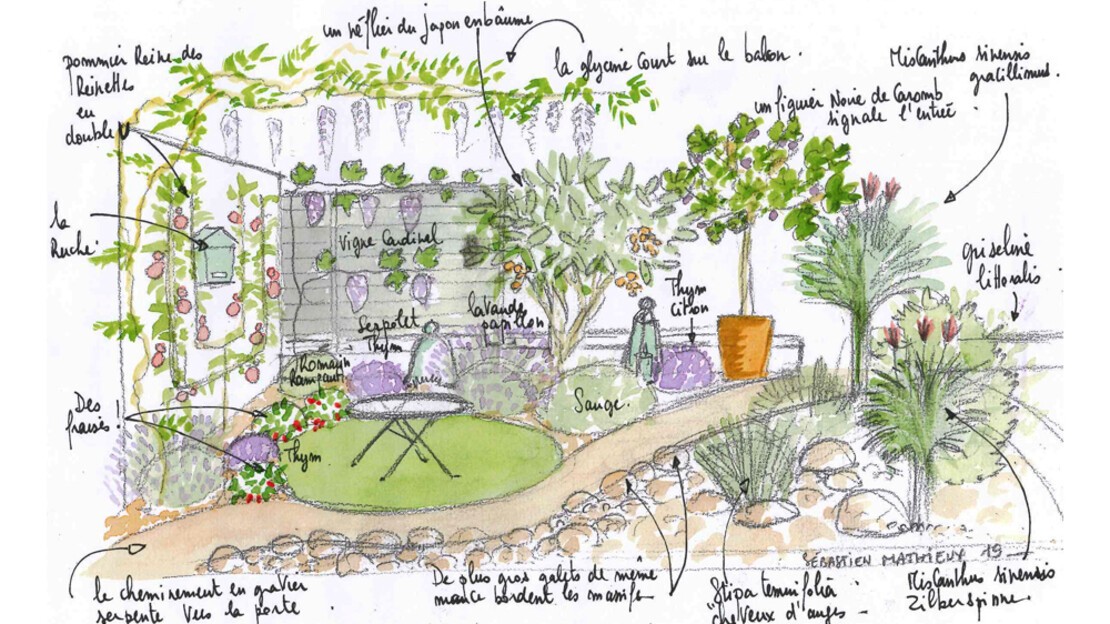 un néflier du Japon embaûme
la glycine court sur le balcon.
pommier Reine des
Reinettes
en
double U
Miscanthus sinensis
gracillimus.
un figuier Noire de Caromb
signale l'entrée
la
Ruche.
Vigne Cardinal
griseline
littoralis
Thym
citron
lavande
papillon
Serpolet
Thym
Romarin
Rampant
Des
fraises!
Sauge.
Thym
SÉBASTIEN MATHIEU 19
le cheminement en gravier
serpente vers la porte.
De plus gros galets de même
bordent les massifs
Stipa tennifolia
"cheveux d'anges -
Miscanthus sinensis
Zilberspinne.